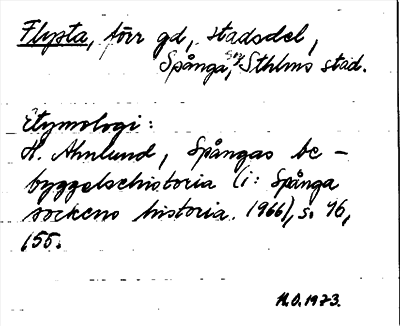 Flysta, förr gd, stadsdel,
Spånga, sn, Sthlms stad.
Etymologi:
H. Ahnlund, Spångas be-
byggelsehistoria (i: Spånga
sockens historia. 1966), s. 46,
155.
H.O. 1973.